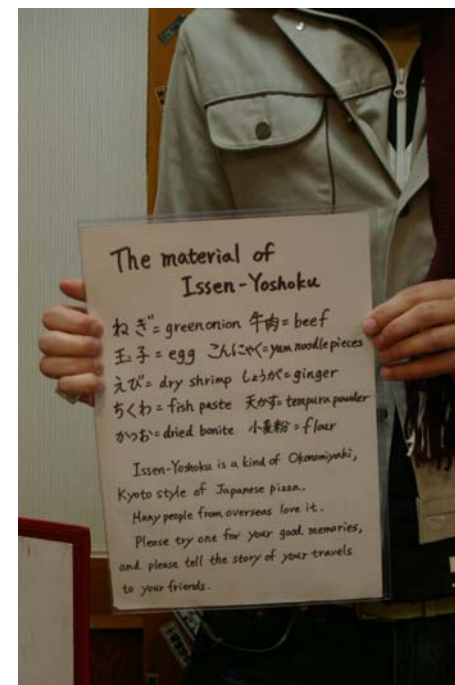 The material of
Issen-Yoshoku
ねぎ=green onion 牛肉=beef
玉子=egg こんにゃく=yam noodle pieces
えび=dry shrimp しょうが=ginger
ちくわ=fish paste 天かす=tempura powder
かつお=dried bonite 小麦粉=flour
Issen-Yoshoku is a kind of Okonomiyaki,
Kyoto style of Japanese pizza.
Many people from overseas love it.
Please try one for your good memories,
and please tell the story of your travels
to your friends.